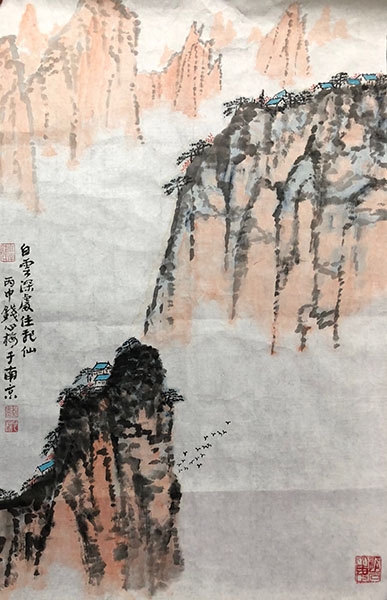 白雲深處住仙
丙申錢心梅于南京